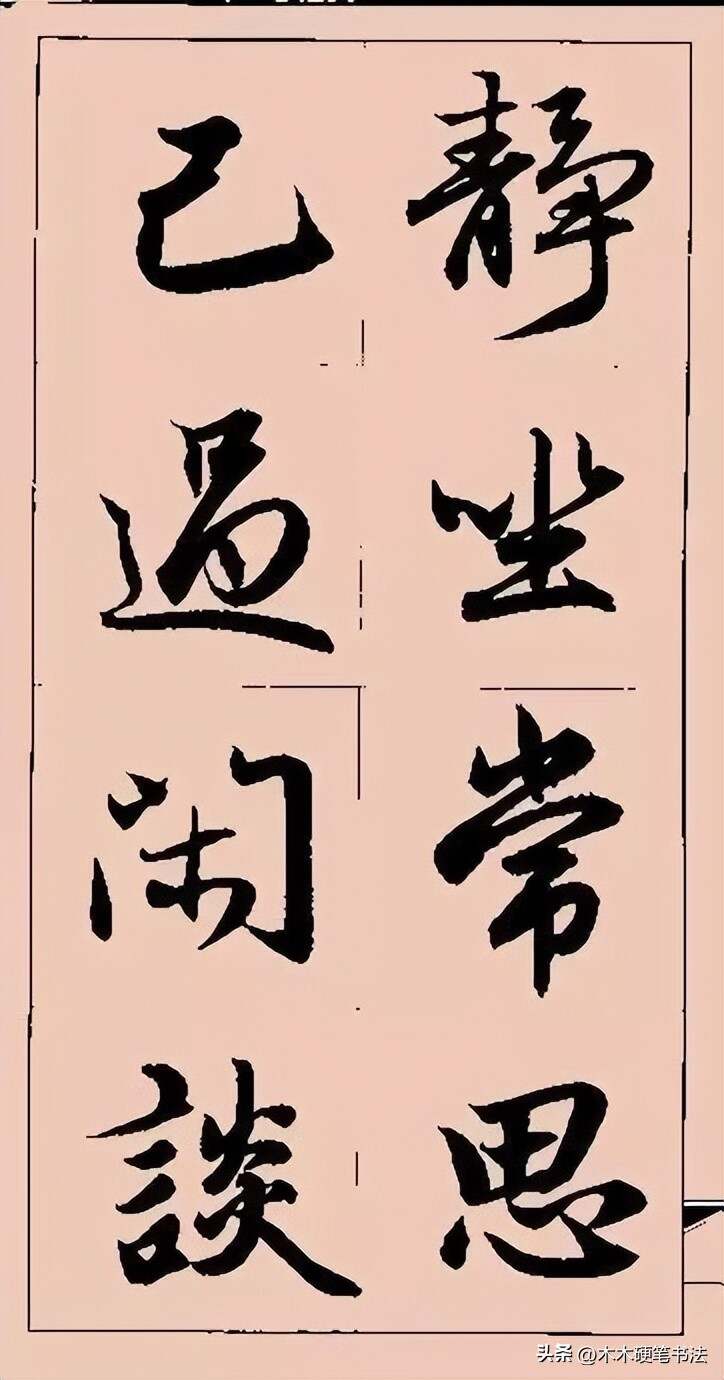 静坐常思
己過闲談
头条 @木木硬笔书法